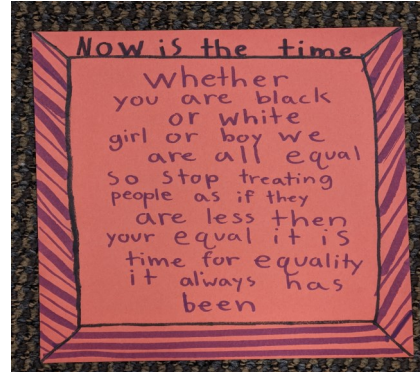 Now is the time
Whether
you are black
or white
girl or boy we
are all equal
so stop treating
people as if they
are less then
your equal it is
time for equality
it always has
been